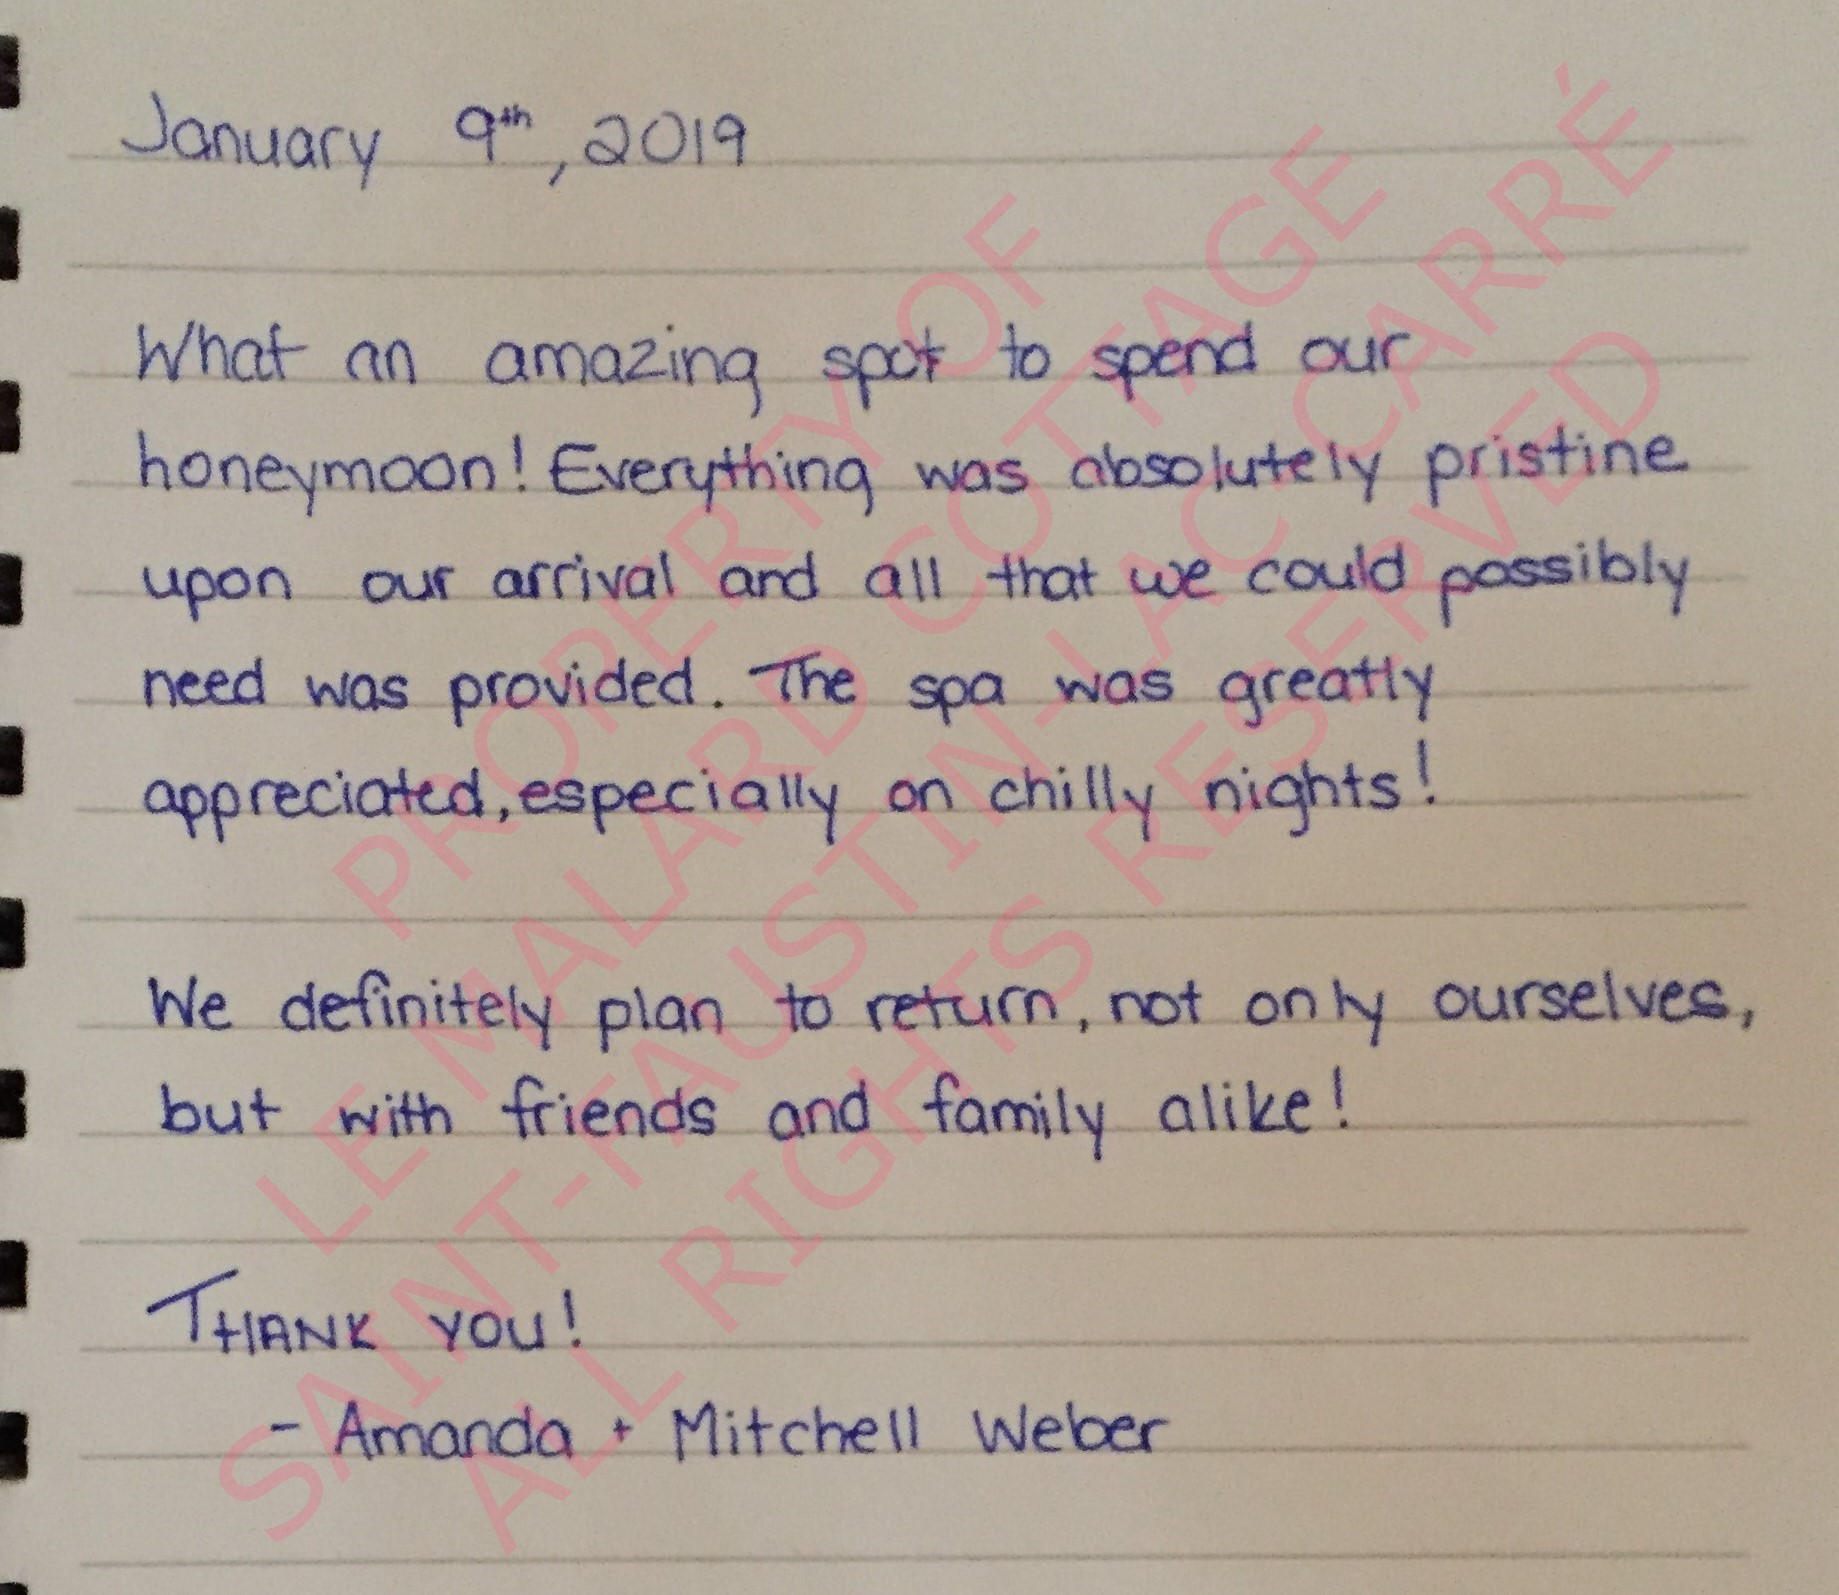 January 9th, 2019
What an amazing spot to spend our
honeymoon! Everything was absolutely pristine
upon our arrival and all that we could possibly
need was provided. The spa was greatly
appreciated, especially on chilly nights!
We definitely plan to return, not only ourselves,
but with friends and family alike!
THANK YOU!
- Amanda + Mitchell Weber
PROPERTY OF
LE MALARD COTTAGE
SAINT-FAUSTIN-LAC CARRÉ
ALL RIGHTS RESERVED